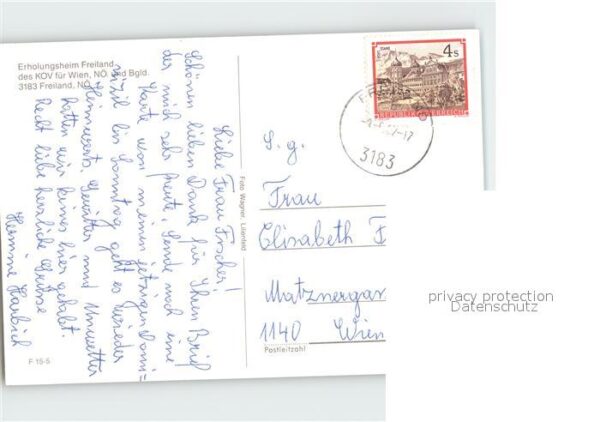 Erholungsheim Freiland
des KOV für Wien, NÖ. und Bgld.
3183 Freiland, NÖ
Liebe Frau Fischer!
Schönen lieben Dank für Ihren Brief
der mich sehr freute, sende noch eine
Karte von meinen jetzigen Domi-
zil bis Sonntag geht es wieder
Heimwärts. Gewitter und Unwetter
hatten wir keines hier gehabt.
Recht liebe herzliche Grüsse
Hermine
F 15-5
Foto Wagner, Lilienfeld
4 S
STAMS
REPUBLIK ÖSTERREICH
3183
S. g.
Frau
Elisabeth F
Matznergas
1140 Wien
Postleitzahl
privacy protection
Datenschutz